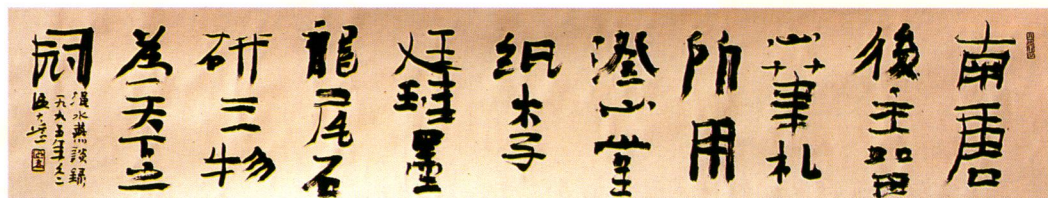 南唐
後主留
心筆札
所用
澄心堂
紙李
廷珪墨
龍尾石
研三物
為天下之
冠
澠水燕談錄
一九九五年